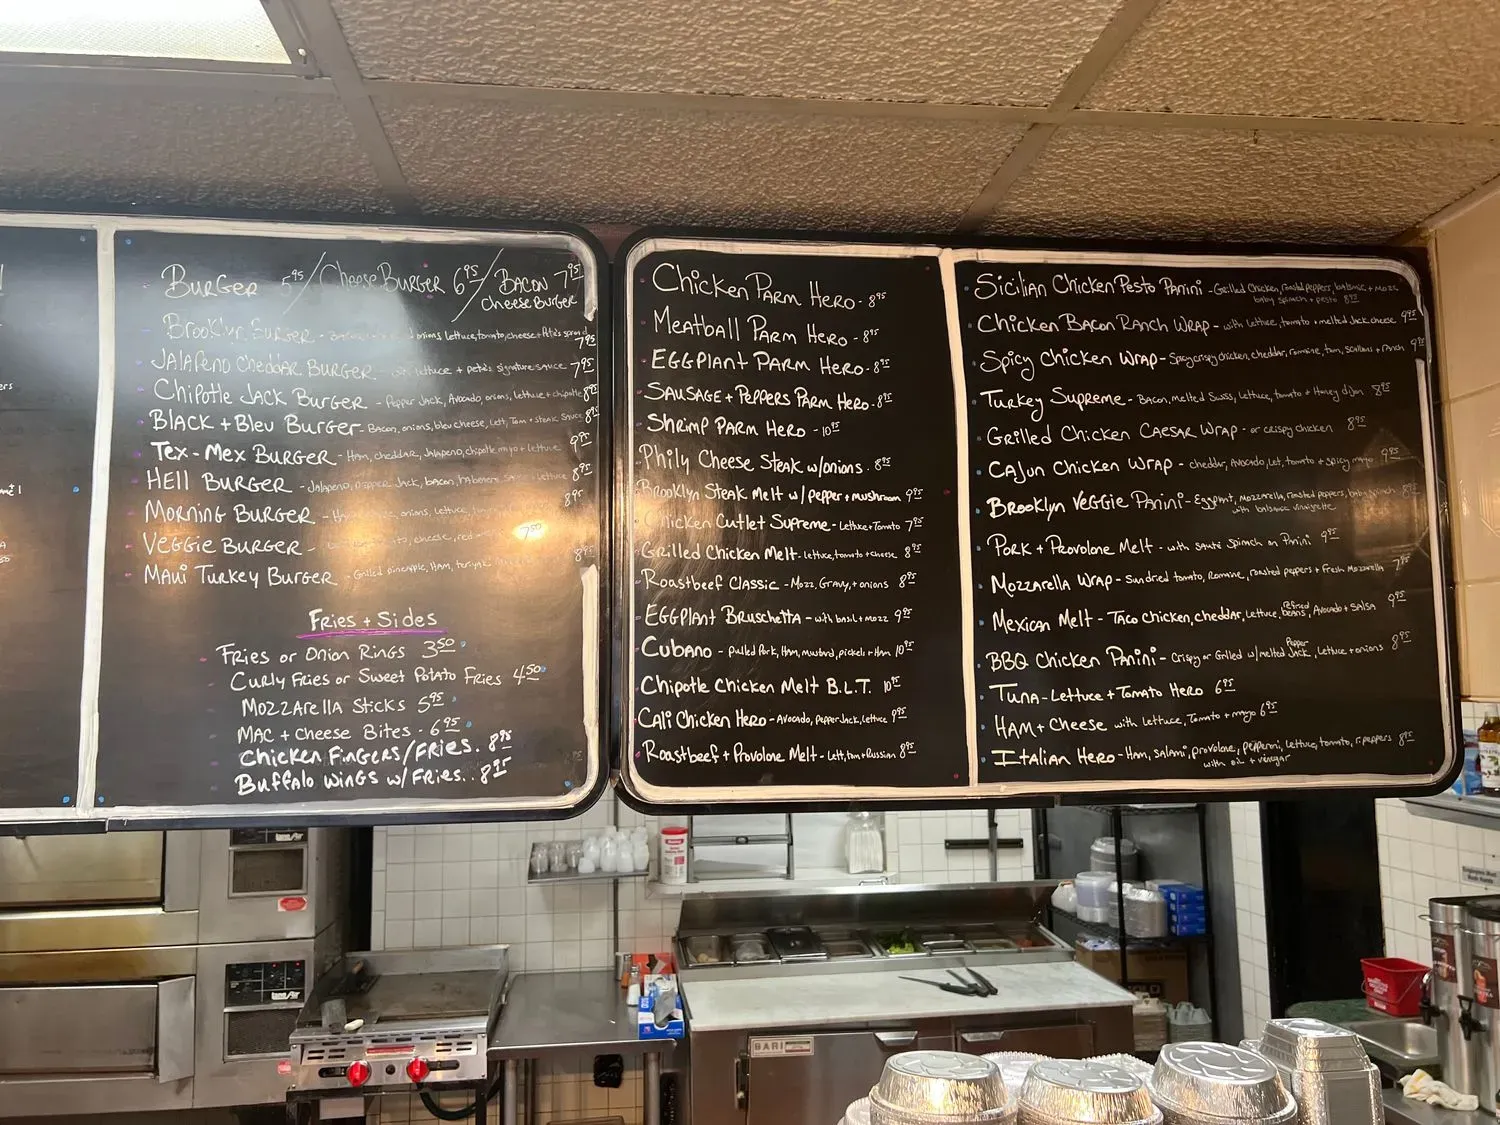 Burger 5.95 / Cheese Burger 6.95 / Bacon Cheese Burger 7.95
Brooklyn Burger - onions, lettuce, tomato, cheese + Pete's spread 7.95
Jalapeno Cheddar Burger - lettuce + pete's signature sauce 7.95
Chipotle Jack Burger - Pepper Jack, Avocado, onions, lettuce + chipotle 8.95
Black + Bleu Burger - Bacon, onions, bleu cheese, Let, Tom + steak sauce 8.95
Tex-Mex Burger - Ham, cheddar, Jalapeno, chipotle mayo + lettuce 9.95
Hell Burger - Jalapeno, pepper Jack, bacon, habenero sauce + lettuce 8.95
Morning Burger - onions, lettuce, 8.95
Veggie Burger - cheese, red 7.50
Maui Turkey Burger - Grilled pineapple, Ham, teriyaki 8.95
Fries + Sides
Fries or Onion Rings 3.50
Curly Fries or Sweet Potato Fries 4.50
Mozzarella Sticks 5.95
Mac + Cheese Bites - 6.95
Chicken Fingers/Fries. 8.95
Buffalo Wings w/ Fries.. 8.95
Chicken Parm Hero - 8.95
Meatball Parm Hero - 8.95
Eggplant Parm Hero - 8.95
Sausage + Peppers Parm Hero - 8.95
Shrimp Parm Hero - 10.95
Phily Cheese Steak w/onions. 8.95
Brooklyn Steak Melt w/ pepper + mushroom 9.95
Chicken Cutlet Supreme - Lettuce + Tomato 7.95
Grilled Chicken Melt - lettuce, tomato + cheese 8.95
Roastbeef Classic - Mozz, Gravy, + onions 8.95
Eggplant Bruschetta - with basil + mozz 9.95
Cubano - pulled Pork, Ham, mustard, pickels + Ham 10.95
Chipotle Chicken Melt B.L.T. 10.95
Cali Chicken Hero - Avocado, Pepper Jack, lettuce 9.95
Roastbeef + Provolone Melt - Lett, tom + Russian 8.95
Sicilian Chicken Pesto Panini - Grilled Chicken, roasted peppers, balsamic + mozz
baby spinach + pesto 8.95
Chicken Bacon Ranch Wrap - with lettuce, tomato + melted Jack cheese 9.95
Spicy Chicken Wrap - Spicy crispy chicken, cheddar, romaine, tom, scallions + ranch 9.95
Turkey Supreme - Bacon, melted Swiss, Lettuce, tomato + Honey dijon 8.95
Grilled Chicken Caesar Wrap - or crispy chicken 8.95
Cajun Chicken Wrap - cheddar, Avocado, Let, tomato + spicy mayo 9.95
Brooklyn Veggie Panini - Eggplant, mozzarella, roasted peppers, baby spinach 8.95
with balsamic vinaigrette
Pork + Provolone Melt - with sauté Spinach on Panini 9.95
Mozzarella Wrap - Sundried tomato, Romaine, roasted peppers + Fresh Mozzarella 7.95
Mexican Melt - Taco chicken, cheddar, lettuce, refried beans, Avocado + Salsa 9.95
BBQ Chicken Panini - Crispy or Grilled w/melted Pepper Jack, Lettuce + onions 8.95
Tuna - Lettuce + Tomato Hero 6.95
Ham + Cheese with Lettuce, Tomato + mayo 6.95
Italian Hero - Ham, salami, provolone, pepperoni, lettuce, tomato, r. peppers 8.95
with oil + vinegar
BARI